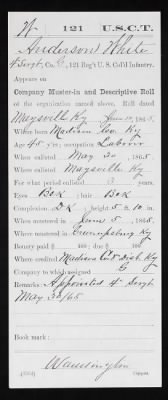 W 121 U.S.C.T.
Anderson White
4 Sergt, Co. G, 121 Reg't U. S. Col'd Infantry.
Appears on
Company Muster-in and Descriptive Roll
of the organization named above. Roll dated
Maysville Ky June 10, 1865.
Where born Madison Co. Ky
Age 45 y'rs; occupation Labour
When enlisted May 30, 1865
Where enlisted Maysville Ky
For what period enlisted 3 years.
Eyes Bck; hair Bck
Complexion Dk; height 5 ft. 10 in.
When mustered in June 5, 1865.
Where mustered in Ky
Bounty paid $ 100; due $ 100
Where credited Madison Co 8 Dist. Ky
Company to which assigned G
Remarks: Appointed 4" Sergt
May 30/65
Book mark:
Copyist.